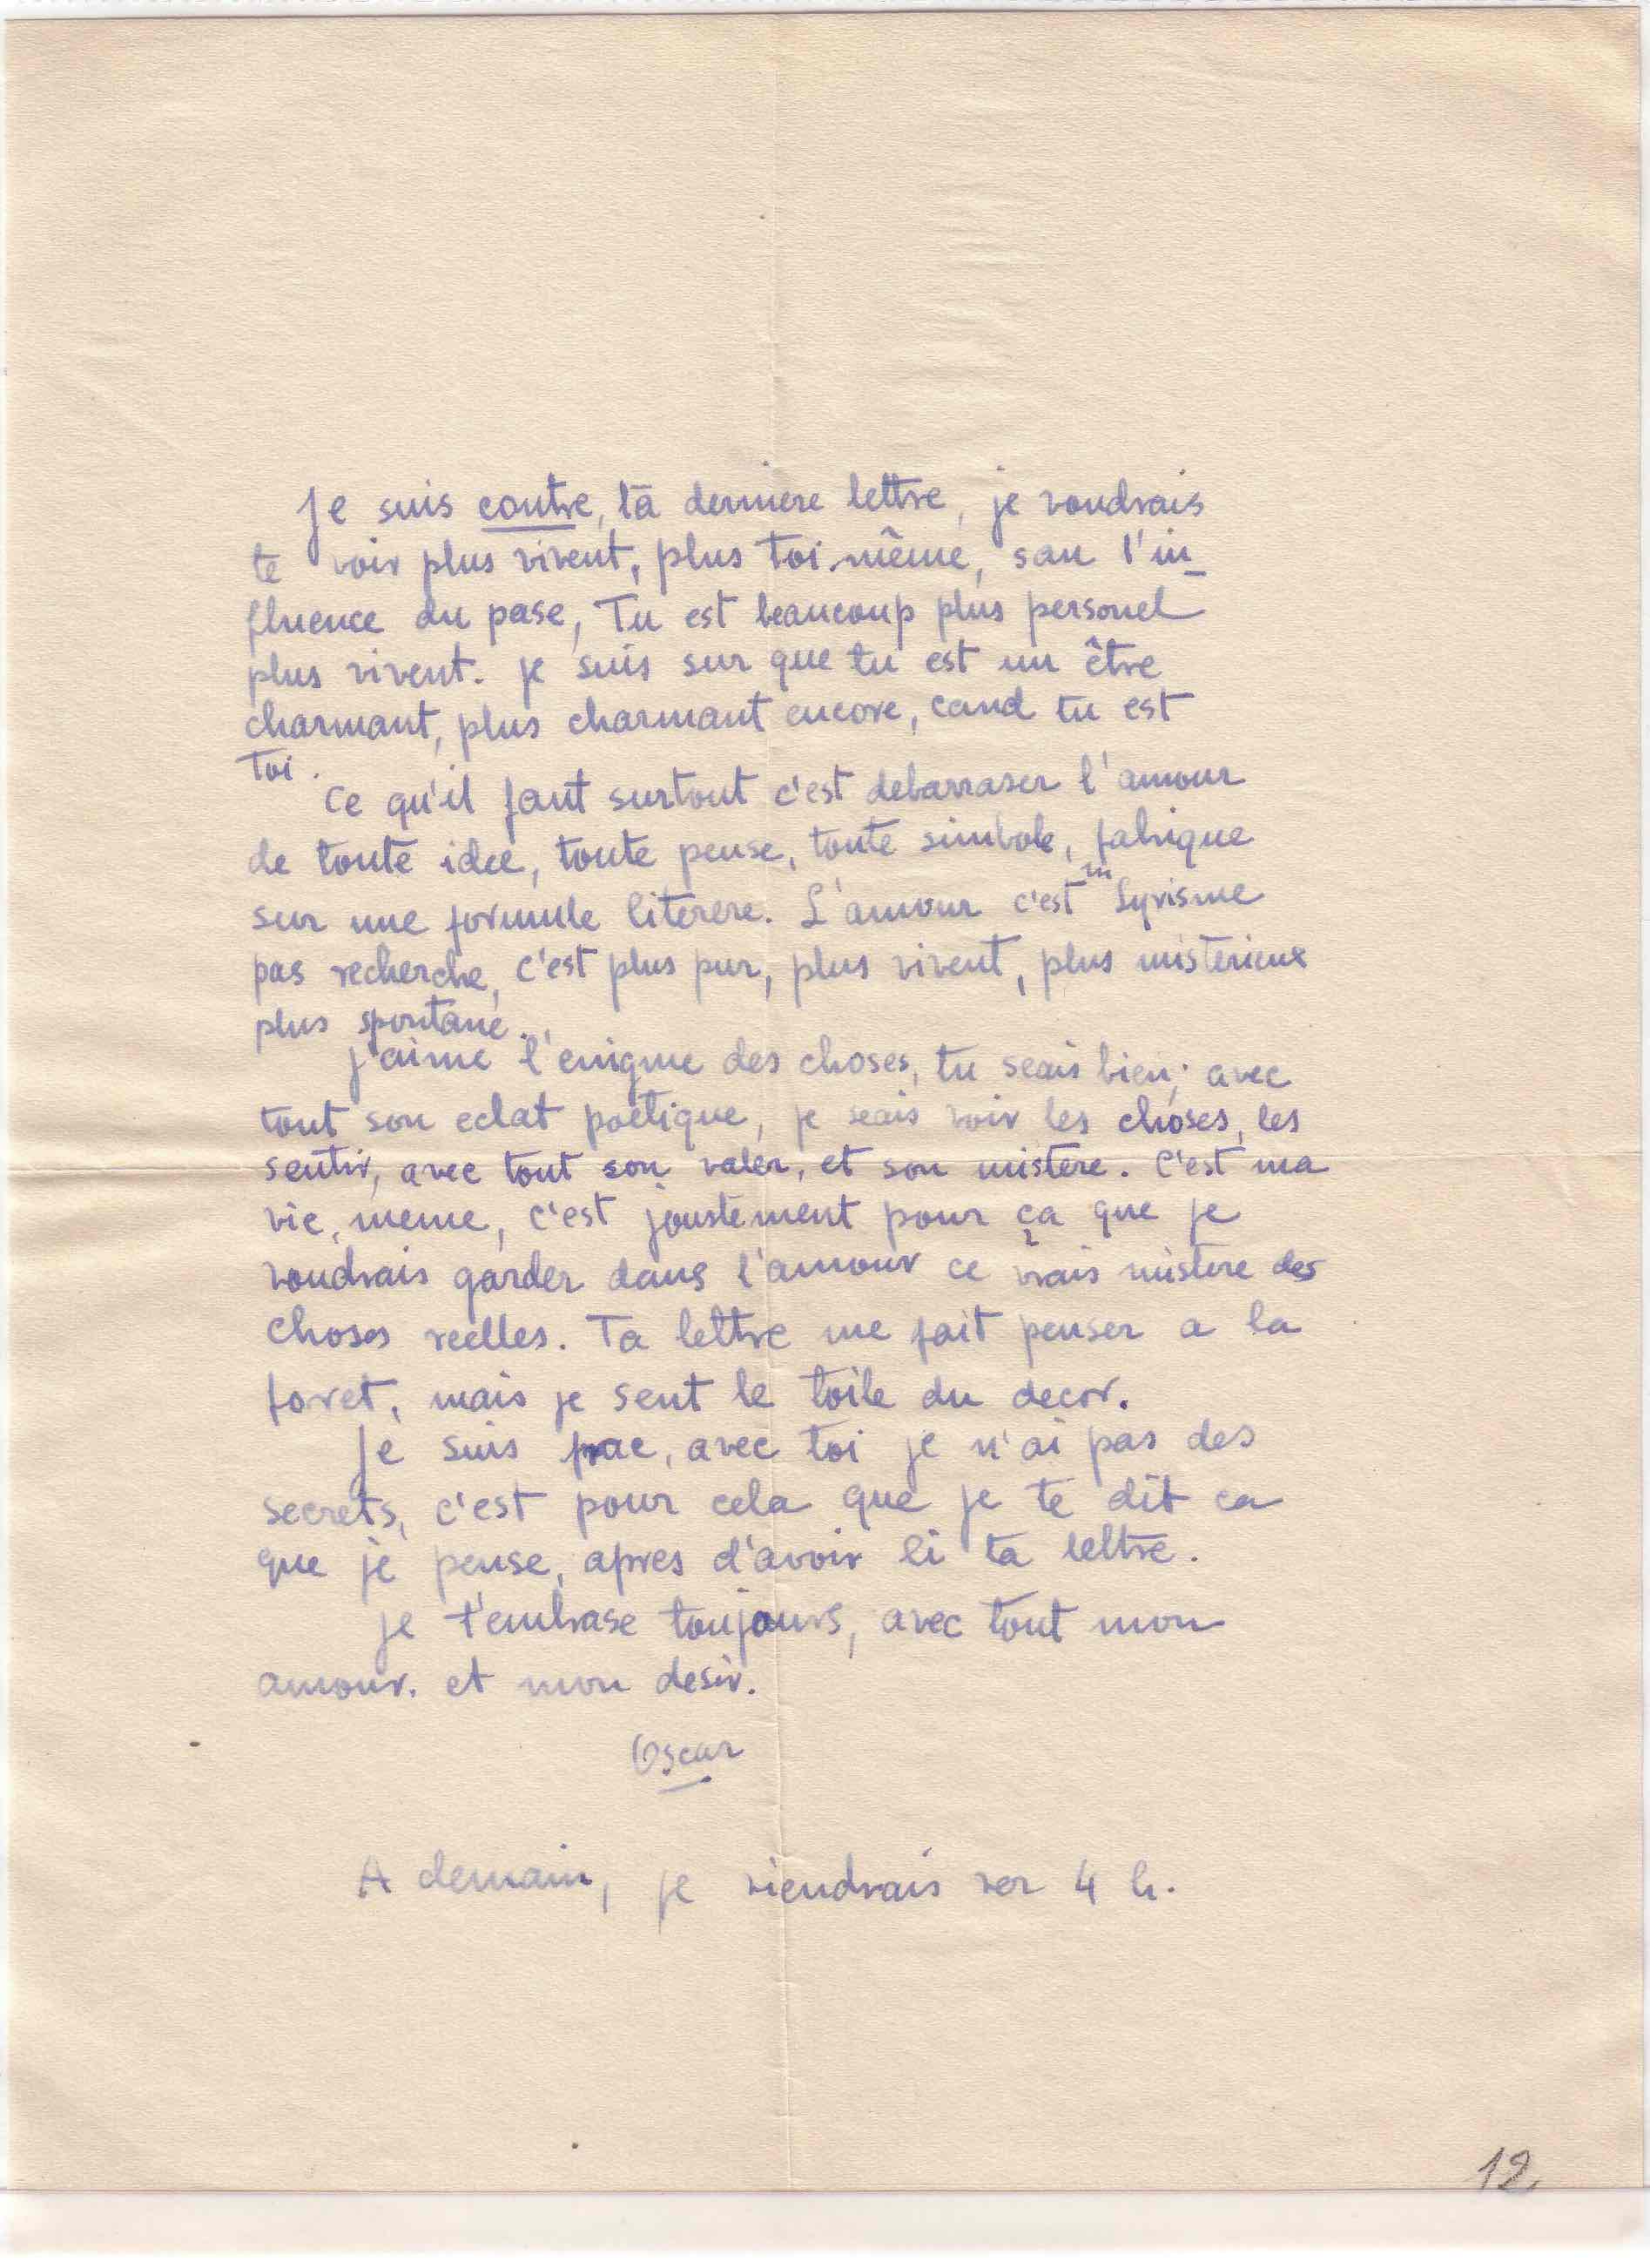 Je suis contre, ta derniere lettre, je voudrais
te voir plus vivent, plus toi-même, san l'in_
fluence du pase, Tu est beaucoup plus personel
plus vivent. je suis sur que tu est un être
charmant, plus charmant encore, cand tu est
Toi.
Ce qu'il faut surtout c'est debarraser l'amour
de toute idee, toute pense, toute simbole, fabrique
sur une formule literere. L'amour c'est un Lyrisme
pas recherche, c'est plus pur, plus vivent, plus misterieux
plus spontane.
J'aime l'enigme des choses, tu seais bien; avec
tout son eclat poetique, je seais voir les choses, les
sentir, avec tout son valer, et son mistere. C'est ma
vie, meme, c'est joustement pour ça que je
voudrais garder dans l'amour ce vrais mistere des
choses reelles. Ta lettre me fait penser a la
foret, mais je sent le toile du decor.
Je suis avec toi je n'ai pas des
secrets, c'est pour cela que je te dit ca
que je pense, apres d'avoir li ta lettre.
je t'embrase toujours, avec tout mon
amour. et mon desir.
Oscar
A demain, je viendrais ver 4 h.
12